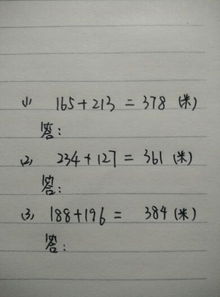 (1) 165+213=378(米)
答:
(2) 234+127=361(米)
答:
(3) 188+196= 384(米)
答: